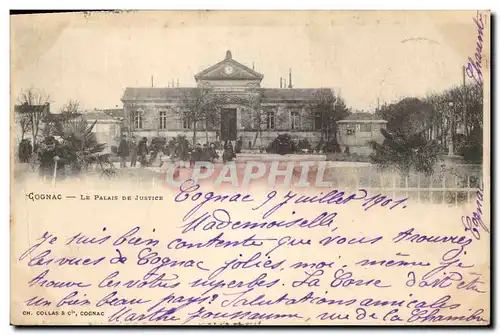 COGNAC — LE PALAIS DE JUSTICE
CPARAPHI
Cognac 9 Juillet 1901.
Mademoiselle,
Je suis bien contente que vous trouviez
les vues de Cognac jolies, moi même je
trouve les vôtres superbes. La Corse doit être
un bien beau pays? Salutations amicales
Marthe rue de la
CH. COLLAS & Cie, COGNAC